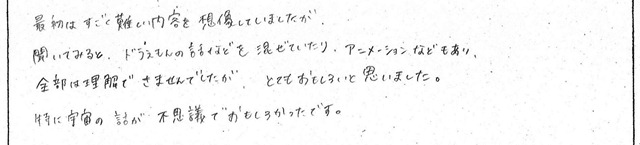 最初はすごく難しい内容を想像していましたが、
聞いてみると、ドラえもんの話などを混ぜていたり、アニメーションなどもあり、
全部は理解できませんでしたが、とてもおもしろいと思いました。
特に宇宙の話が不思議でおもしろかったです。